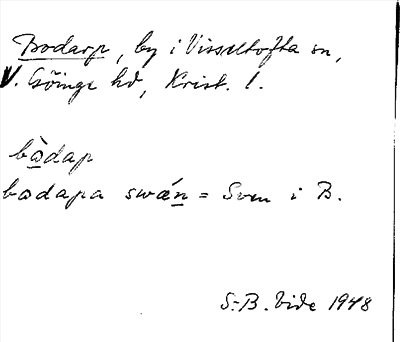 Bodarp, by i Visseltofta sn,
V. Göinge hd, Krist. l.
bòdap
bodapa swǽn = Sven i B.
S:B. Vide 1948